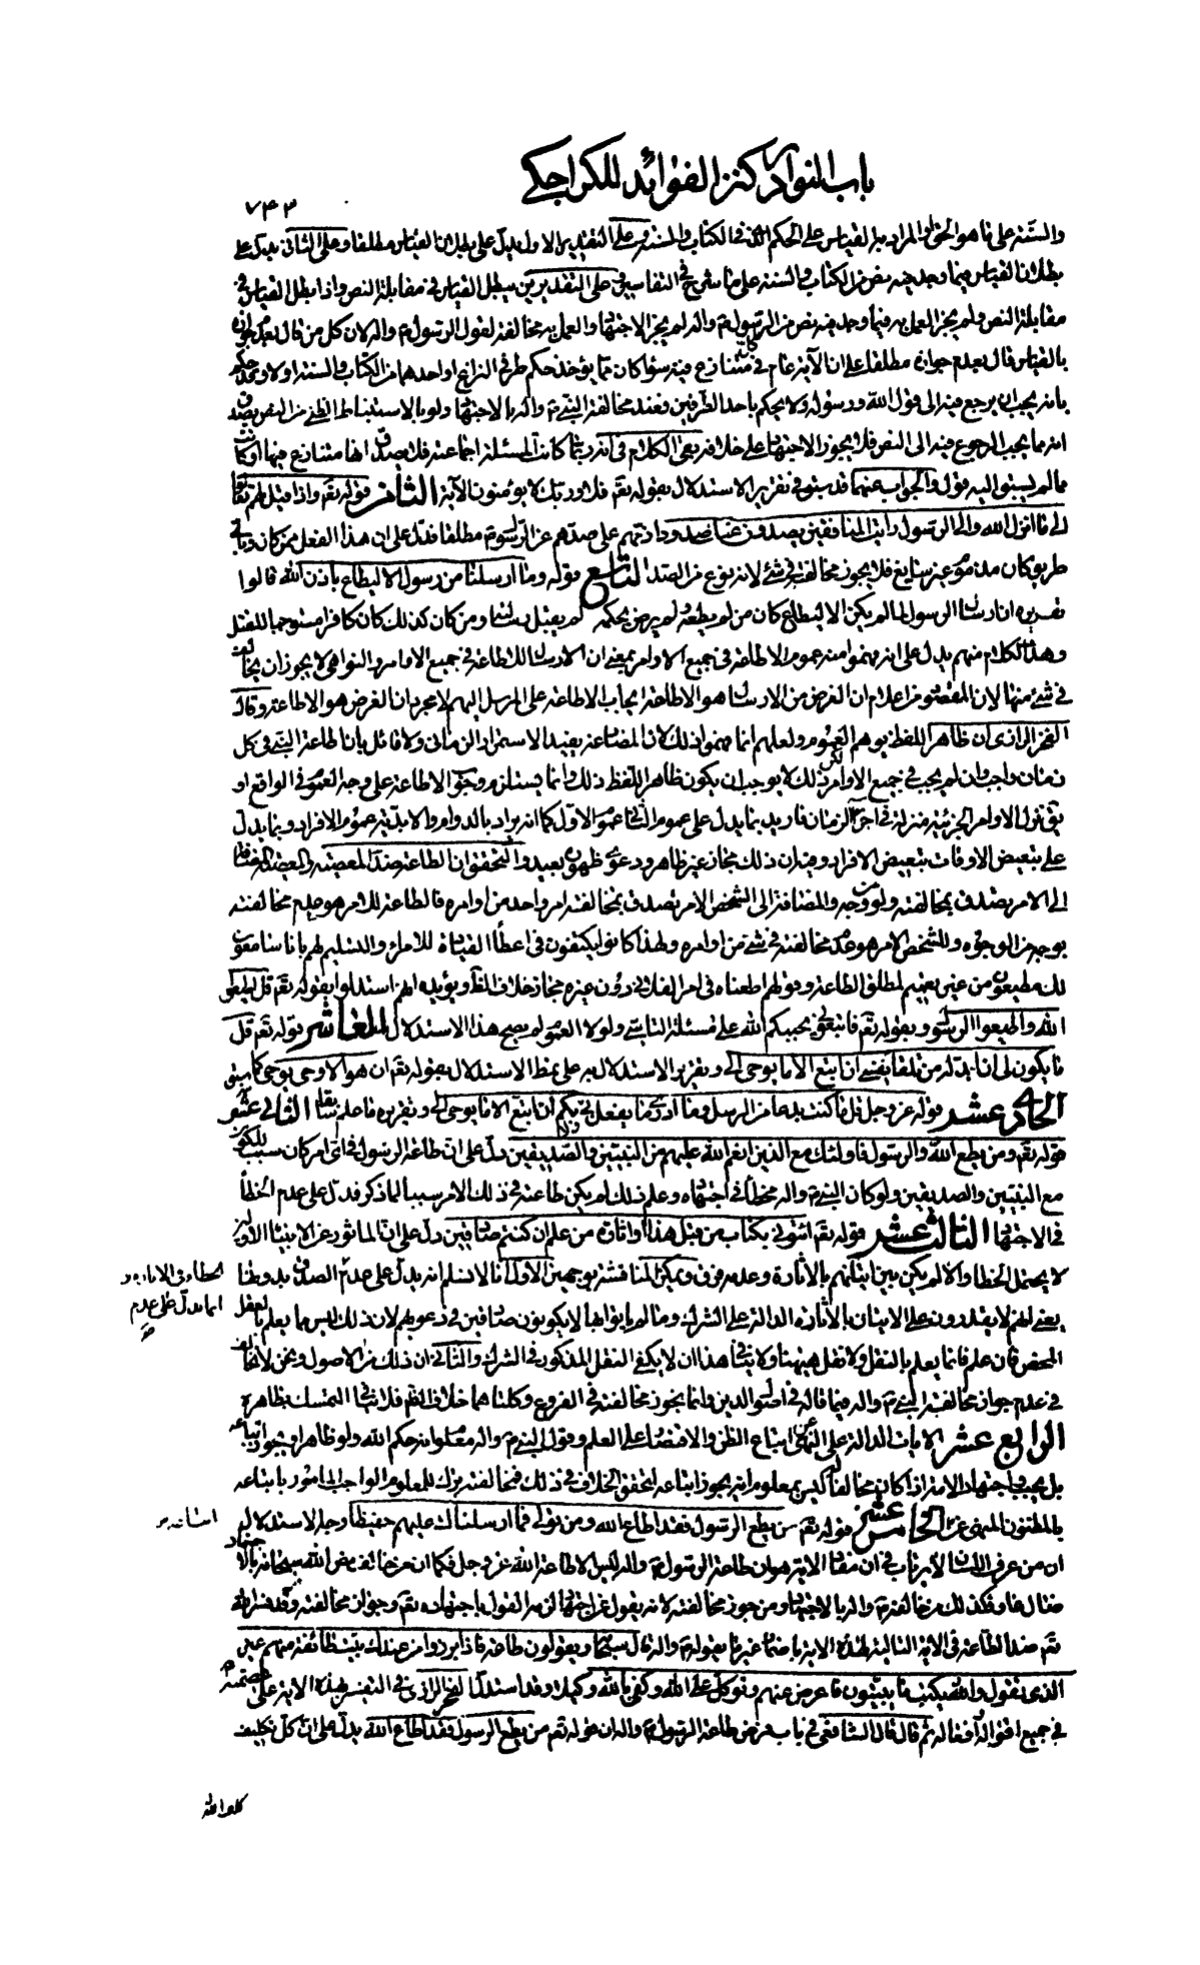 باب النوادر كنز الفوائد للكراجكي
٧٤٣
والسنة على ما هو الحق او المراد به القياس على الحكم الثابت في الكتاب والسنة وعلى التقدير الاول يدل على بطلان القياس مطلقا وعلى الثاني يدل على
بطلان القياس فيما وجد فيه نص من الكتاب والسنة على ما شرح في التفاسير فعلى التقديرين يبطل القياس في مقابلة النص واذا بطل القياس في
مقابلة النص ولم يجز العمل به فيما وجد فيه نص من الرسول ص واله لم يجز الاجتهاد والعمل به مخالفة لقول الرسول ص واله لان كل من قال بعدم جوازه
بالقياس قال بعدم جوازه مطلقا على ان الآية عام في كل متنازع فيه سواء كان مما يؤخذ حكم طرفي النزاع او احدهما من الكتاب والسنة اولا وقد حكم
بانه يجب ان يرجع فيه الى قول الله ورسوله ولا يحكم باحد الطرفين فعند مخالفة النبي ص واله بالاجتهاد ولو بالاستنباط الظني من النص يصدق
انه مما يجب الرجوع فيه الى النص فلا يجوز الاجتهاد على خلافه بقي الكلام في انه ربما كانت المسئلة اجماعية فلا يصدق انها متنازع فيها او كانت
مما لم يسبق اليه قول والجواب عنهما قد سبق في تقرير الاستدلال بقوله تع فلا وربك لا يؤمنون الآية الثامن قوله تع واذا قيل لهم تعالوا
الى ما انزل الله والى الرسول رايت المنافقين يصدون عنك صدودا ذمهم على صدهم عن الرسول ص مطلقا فدل على ان هذا الفعل ممن كان وباي
طريق كان مذموم غير سايغ فلا يجوز مخالفته في شئ لانه نوع من الصد التاسع قوله وما ارسلنا من رسول الا ليطاع باذن الله قالوا
تفسيره ان ارسال الرسول لما لم يكن الا ليطاع كان من لم يطعه ولم يرض بحكمه لم يقبل رسالته ومن كان كذلك كان كافرا مستوجبا للقتل
وهذا الكلام منهم يدل على انهم فهموا منه عموم الاطاعة في جميع الاوامر بمعنى ان الارسال لاطاعة في جميع الاوامر والنواهي لا يجوز ان يخالف
في شئ منها لان المقصود من اعلام ان الغرض من الارسال هو الاطاعة ايجاب الاطاعة على المرسل اليهم لا مجرد ان الغرض هو الاطاعة وقال
الفخر الرازي ان ظاهر اللفظ يوهم العموم ولعلهم انما فهموا ذلك لان المضارعة يفيد الاستمرار الزماني ولا قائل بان اطاعة النبي في كل
زمان واجب وان لم يجب في جميع الاوامر لكن ذلك لا يوجب ان يكون ظاهر اللفظ ذلك وانما يستلزم وجوب الاطاعة على وجه العموم في الواقع او
يق نزل الاوامر الجزئية منزلة في اجزاء الزمان فاريد بما يدل على عموم الثاني عموم الاول كما انه يراد بالدوام والابدية عموم الافراد وبما يدل
على تبعيض الاوقات تبعيض الافراد وفيه ان ذلك مجاز غير ظاهر ودعوى ظهوره بعيد والتحقيق ان الطاعة ضد المعصية والمعصية المضافة
الى الامر يصدق بمخالفته ولو بوجه والمضافة الى الشخص الامر يصدق بمخالفة امر واحد من اوامره فالطاعة للامر هو عدم مخالفته
بوجه من الوجوه وللشخص الامر هو عدم مخالفته في شئ من اوامره ولهذا كانوا يكتفون في اعطاء القياد للامراء والتسليم لهم بانا سامعون
لك مطيعون من غير تقييد لمطلق الطاعة وقولهم اطعناه في امر الفلاني دون غيره مجاز خلاف الظ ويؤيده انهم استدلوا بقوله تع قل اطيعوا
الله واطيعوا الرسول وبقوله تع فاتبعوني يحببكم الله على مسئلة التاسي ولولا العموم لم يصح هذا الاستدلال العاشر قوله تع قل
ما يكون لي ان ابدله من تلقاء نفسي ان اتبع الا ما يوحى الي وتقرير الاستدلال به على نمط الاستدلال بقوله تع ان هو الا وحي يوحى كما سبق
الحادي عشر قوله عز وجل قل ما كنت بدعا من الرسل وما ادري ما يفعل بي ولا بكم ان اتبع الا ما يوحى الي وتقريره ما علم سابقا الثاني عشر
قوله تع ومن يطع الله والرسول فاولئك مع الذين انعم الله عليهم من النبيين والصديقين دل على ان طاعة الرسول في اي امر كان سبب للكون
مع النبيين والصديقين ولو كان النبي ص واله مخطأ في اجتهاده وعلم ذلك لم يكن طاعته في ذلك الامر سببا لما ذكر فدل على عدم الخطأ
في الاجتهاد الثالث عشر قوله تع ائتوني بكتاب من قبل هذا او اثارة من علم ان كنتم صادقين دل على ان الماثور عن الانبياء الاولين
لا يحتمل الخطاء والا لم يكن بين اتيانهم بالاثارة وعدمه فرق ويمكن المناقشة بوجهين الاول انا لا نسلم انه يدل على عدم الصدق بدونها
يعني انهم لا يقدرون على الاتيان بالاثارة الدالة على الشرك وما لم ياتوا بها لا يكونون صادقين في دعويهم لان ذلك ليس مما يعلم بالعقل
المحض فان علم فانما يعلم بالنقل ولا نقل هيهنا ولا ينافي هذا ان لا يكفي النقل المذكور في الشرك والثاني ان ذلك من الاصول ونحن لا نخالف
في عدم جواز مخالفة النبي ص واله فيما قاله في اصول الدين وانما يجوز مخالفته في الفروع وكلتاهما خلاف الظ فلا ينافي التمسك بظاهره
الرابع عشر الايات الدالة على النهي عن اتباع الظن والاقتصار على العلم وقول النبي ص واله معلوم انه حكم الله ولو ظاهرا ويجوز اتباعه
بل يجب اجتهاد الامة اذا كان مخالفا له ليس بمعلوم انه يجوز اتباعه لتحقق الخلاف في ذلك فمخالفته ترك للمعلوم الواجب المامور باتباعه
بالمظنون المنهي عن الخامس عشر قوله تع من يطع الرسول فقد اطاع الله ومن تولى فما ارسلناك عليهم حفيظا وجه الاستدلال به
ان من عرف اللسان لا يرتاب في ان مفاد الاية هو ان طاعة الرسول ص واله ليس الا طاعة الله عز وجل فكما ان من خالف بعض الله سبحانه بالاجتهاد
ضال غاو فكذلك من خالفه ص واله بالاجتهاد ومن جوز مخالفته لانه يقول عن اجتهاد لزمه القول باجتهاده تع وجواز مخالفته وقد فسر الله
تع ضد الطاعة في الاية التالية لهذه الاية باضمار غير ما يقوله ص واله قال سبحانه ويقولون طاعة فاذا برزوا من عندك بيت طائفة منهم غير
الذي تقول والله يكتب ما يبيتون فاعرض عنهم وتوكل على الله وكفى بالله وكيلا وقد استدل الفخر الرازي في التفسير بهذه الاية على عصمته ص
في جميع اقواله وافعاله ثم قال قال الشافعي في باب فرض طاعة الرسول ص واله ان قوله تع من يطع الرسول فقد اطاع الله يدل على ان كل تكليف
الخطاء في الاثارة و
انما يدل على عدم
كلف الله